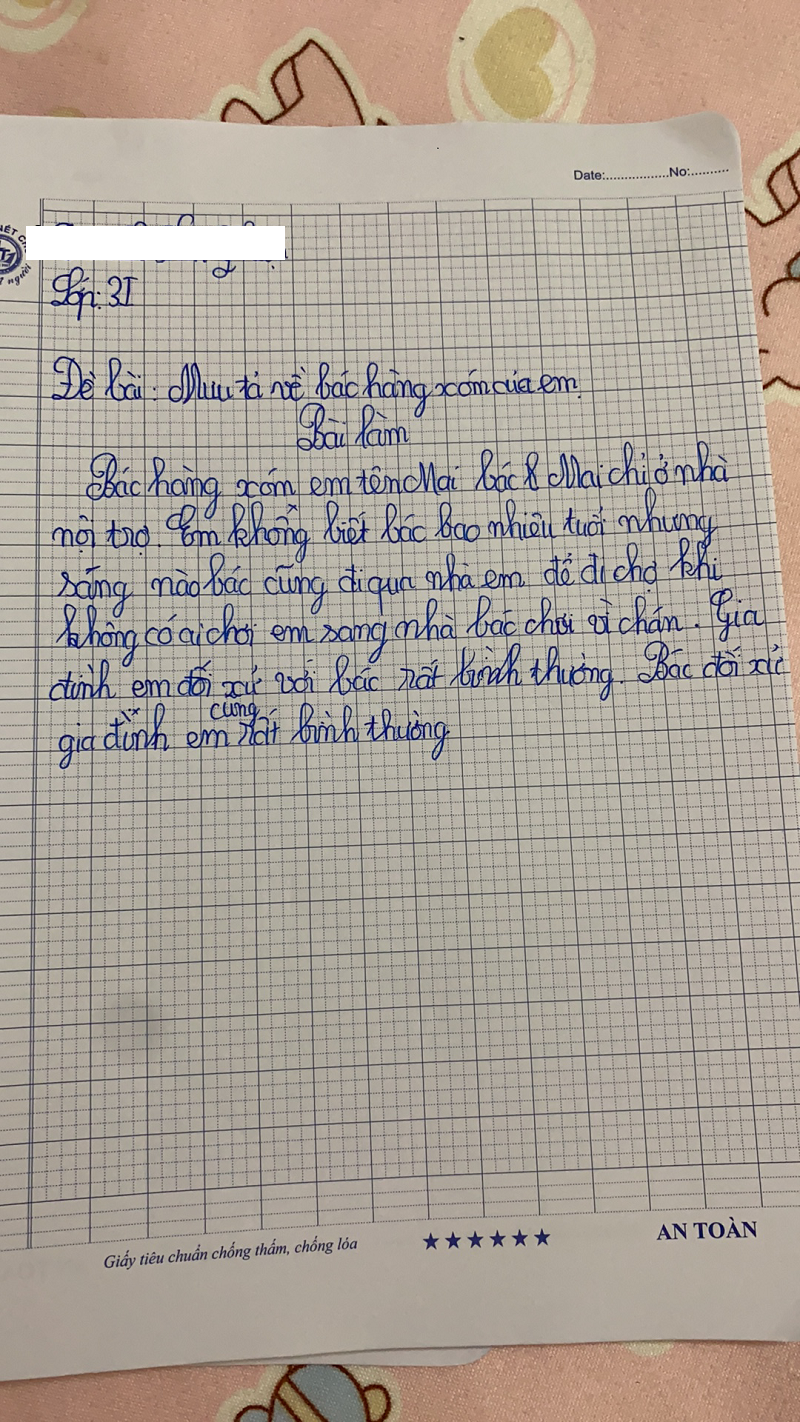 Date:.................No:..........
Lớp: 3I
Đề bài: Mưu tả về bác hàng xóm của em.
Bài làm
Bác hàng xóm em tên Mai bác Mai chỉ ở nhà
nội trợ. Em không biết bác bao nhiêu tuổi nhưng
sáng nào bác cũng đi qua nhà em để đi chợ khi
không có ai chơi em sang nhà bác chơi vì chán. Gia
đình em đối xử với bác rất bình thường. Bác đối xử
gia đình em cung rất bình thường
Giấy tiêu chuẩn chống thấm, chống lóa
★★★★★★
AN TOÀN